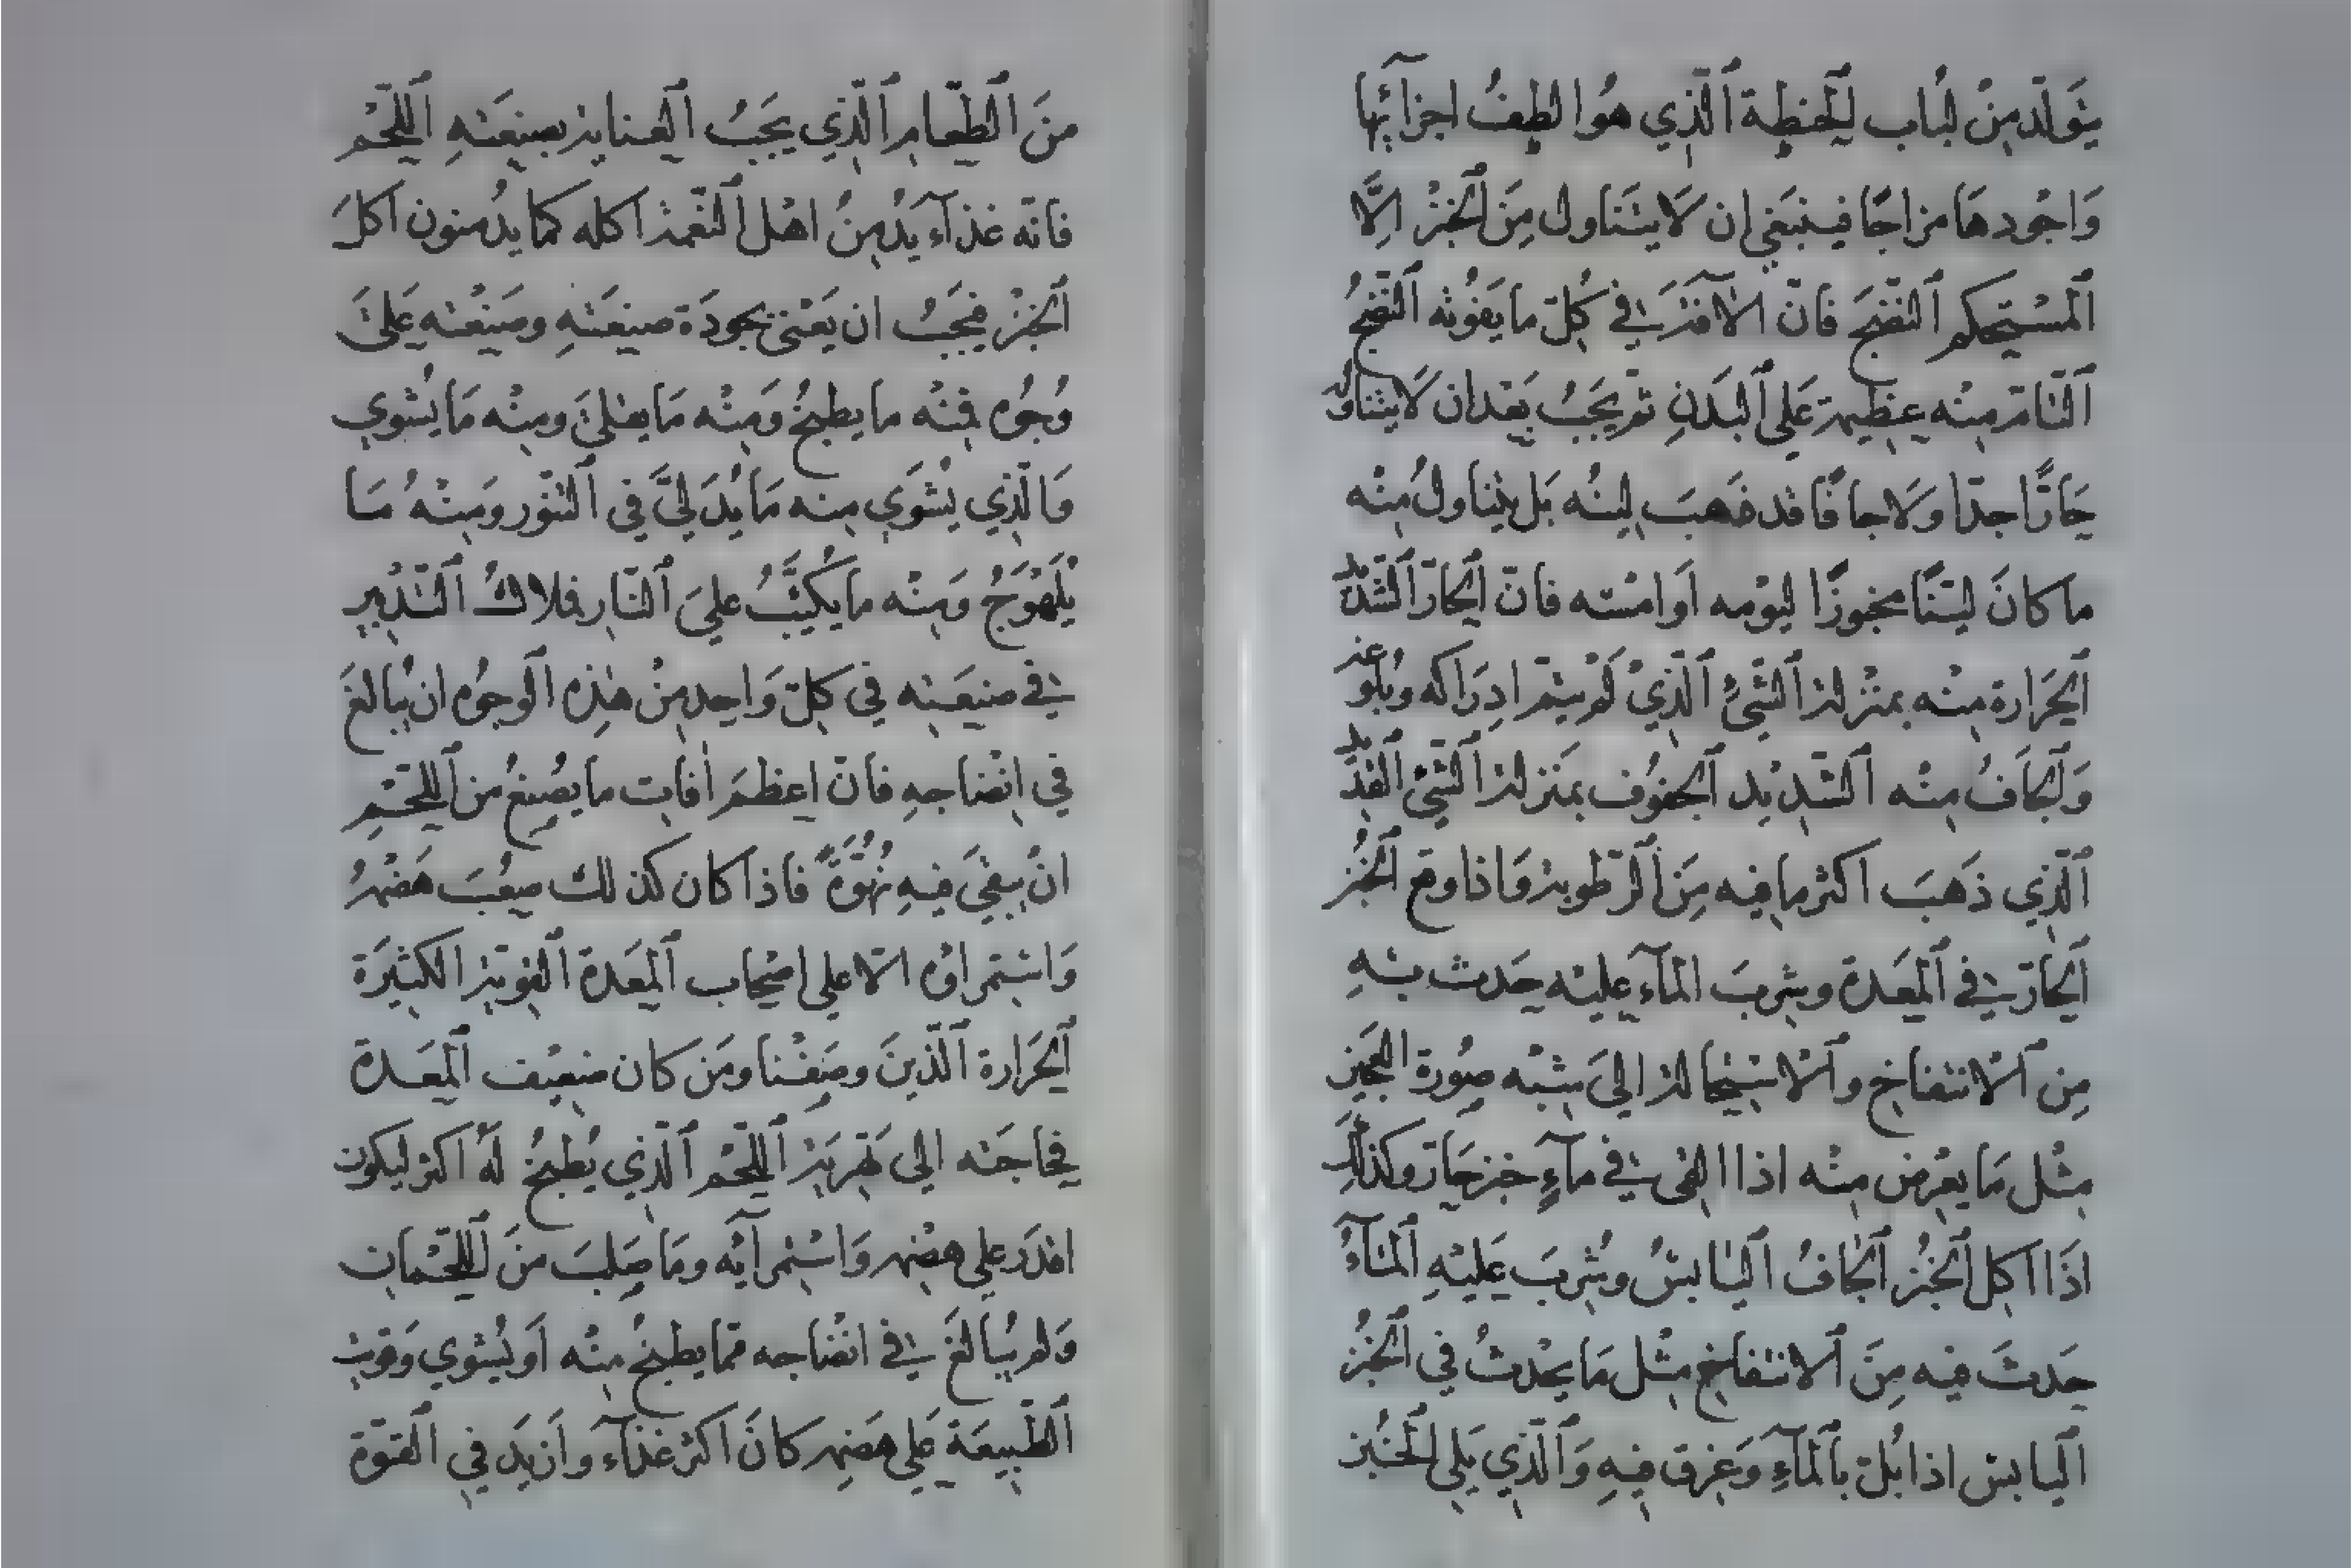 يتولّد من لُباب الحنطة الّذي هُوا لطفُ اجزآئها
وَاجْودهَا مزاجًا فينبَغي ان لَا يتَناول مِنَ الخبْز اِلَّا
المسْتحكم النّضْجَ فانّ الآفة في كُلّ ما يَفُوته النّضْجُ
التّامّ منْه عظيمة عَلى البَدَنِ ثمّ يجَبُ بَعْد ان لَا يتناول
حَارًّا جدّا وَلا جافًّا قد ذهبَ لينُه بَل يتناولُ منْه
ما كانَ ليّنًا مخبوزًا ليوْمه اَوامْسه فانّ الحارّ الشّديد
الحَرارة منْه بمنْزلة الشّيْءِ الّذيْ لَمْ يتمّ ادِرَاكه وبُلوغه
وَالجافُ منْه الشّديْد الجفوُف بمَنزلة الشّيْ القديد
الّذي ذَهبَ اكثر ما فيه مِنَ الرّطوبة وَاذا وقع الخُبْز
الحارّ في المعَدة وشربَ المآء عليْه حَدث بهِ
مِن الْانتفاخ والْاسْتِحالة اليَ شبْه صوُرة العَجين
مثْل مَا يعْرض منْه اذا القى في مآءٍ خبز حَارّ وكذلكَ
اذَا اكل الخُبْز الجافُ اليَابسُ وشُربَ عَليْهِ المآءُ
حَدثَ فيه مِنَ الانتفاخ مثْل مَا يحْدثُ في الخُبْز
اليابسْ اذا بُلّ بالمآءِ وَغرق فيهِ وَالّذي يَلي الخبْز
منَ الطّعام الّذي يجَبُ العناية بصنعَتهِ اللّحْم
فانّه غذآء يُدْمنُ اهْل النّعْمة اكله كما يدُمنون اكلَ
الخبْز فيجَبُ ان يعَتنى بجودَة صنعَتهِ وصَنْعته عَليَ
وُجوُه فمنْه ما يطبخُ وَمنْه مَا يقليَ ومنْه مَا يُشوي
وَالّذي يُشوَي منه مَا يُدَليَّ في التنّور وَمنْهُ مَا
يُلَهْوَجُ وَمنْه ما يُكَبَّبُ عليَ النّار فملاكُ التّدْبير
في صنعَته في كلّ وَاحد منْ هٰذِه الوجوُه ان يُبالغَ
في انْضاجهِ فانّ اعظمَ اٰفات ما يُصنعُ من اللّحْمِ
انْ يبقيَ فيهِ نُهُوَّةً فاذا كان كذلك صعُبَ هَضْمهُ
وَاسْتمراؤه الّا على اصْحاب المعَدة القوّية الكثيَرة
الحَرارة الّذينَ وصَفْنا ومَن كان ضعيْف المعَدة
فحاجَته الي تَهْرية اللّحْم الّذي يُطبخُ لَه اكثر ليكون
اقدَر علي هضْمه وَاسْتمرآئه ومَا صَلبَ منَ اللّحْمان
وَلم يُبالغَ في انْضاجه ممّا يطبخُ منْه اَو يُشوي وَقويت
الطّبيعَة عَلي هضمه كانَ اكثر غذآء وَازيدَ في القوّة